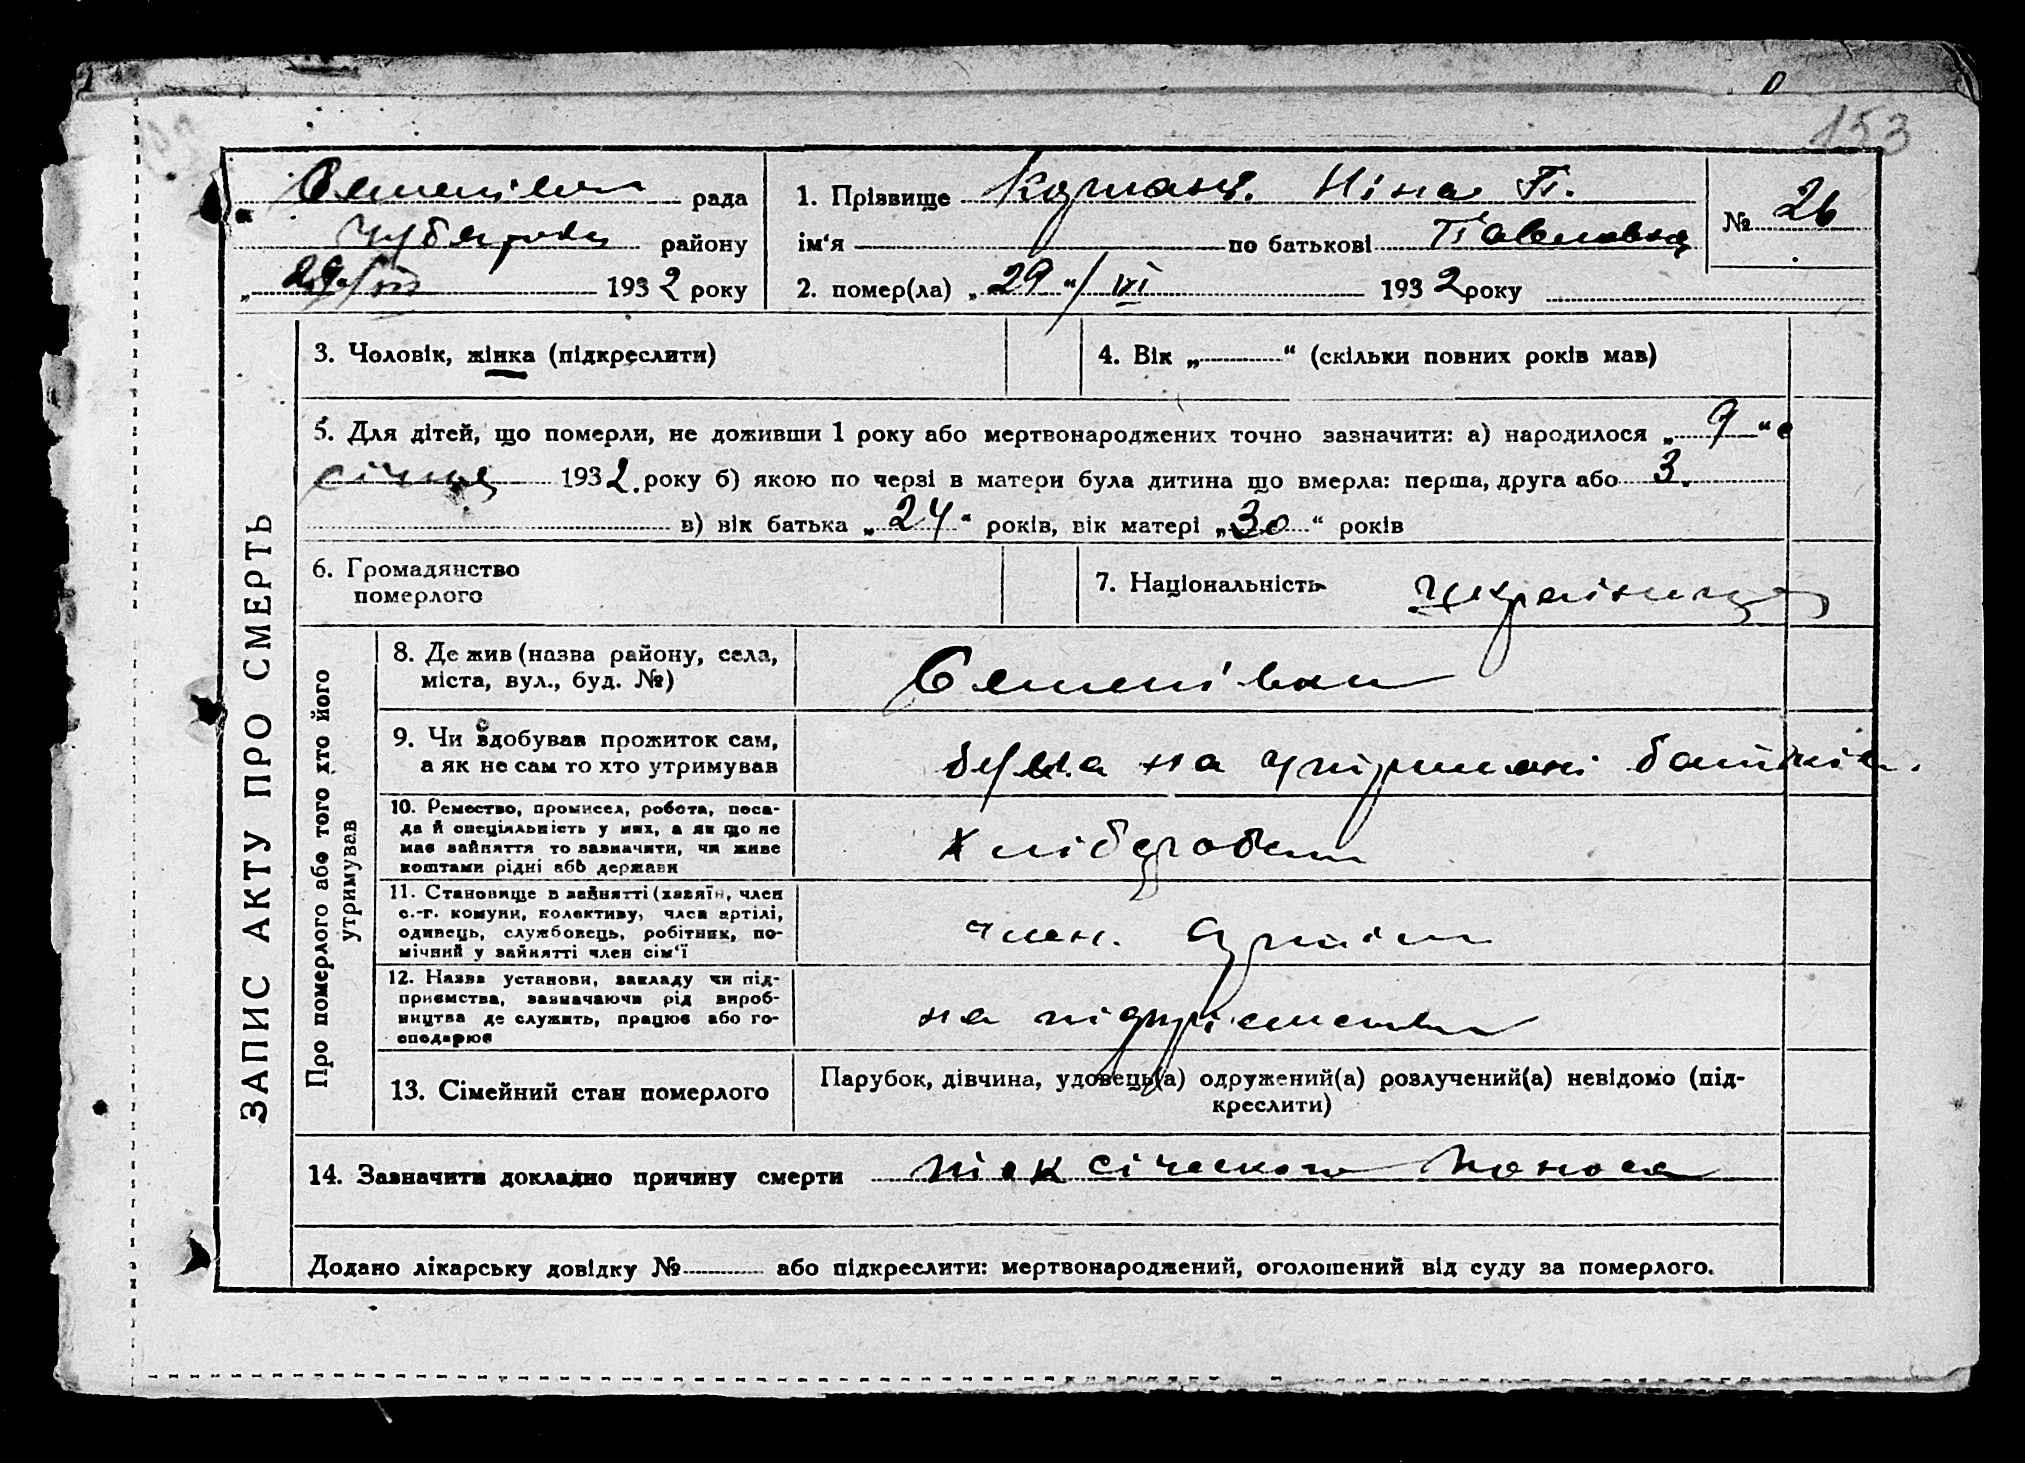 153
Семенівка рада
району
„29/VII 1932 року
1. Прізвище Ніна П.
ім‘я по батькові Павловна
№ 26
2. помер(ла) „29“/VI 1932 року
3. Чоловік, жінка (підкреслити)
4. Вік „ “ (скільки повних років мав)
5. Для дітей, що померли, не доживши 1 року або мертвонароджених точно зазначити: а) народилося „9“
січня 1932 року б) якою по черзі в матери була дитина що вмерла: перша, друга або 3.
в) вік батька „24“ років, вік матері „30“ років
6. Громадянство
померлого
7. Національність українка
ЗАПИС АКТУ ПРО СМЕРТЬ
Про померлого або того хто його
утримував
8. Де жив (назва району, села,
міста, вул., буд. №)
Семенівка
9. Чи здобував прожиток сам,
а як не сам то хто утримував
була на утриманні батьків.
10. Ремество, промисел, робота, поса-
да й спеціяльність у них, а як що не
мав зайняття то зазначити, чи живе
коштами рідні або держави
Хлібороб
11. Становище в зайнятті (хазяїн, член
с.-г. комуни, колективу, член артілі,
одинець, службовець, робітник, по-
мічний у зайнятті член сім‘ї
член. артіли
12. Назва установи, закладу чи під-
приємства, зазначаючи рід вироб-
ництва де служить, працює або го-
сподарює
на підприємстві
13. Сімейний стан померлого
Парубок, дівчина, удовець(а) одружений(а) розлучений(а) невідомо (під-
креслити)
14. Зазначити докладно причину смерти токсіческого поноса
Додано лікарську довідку № або підкреслити: мертвонароджений, оголошений від суду за померлого.